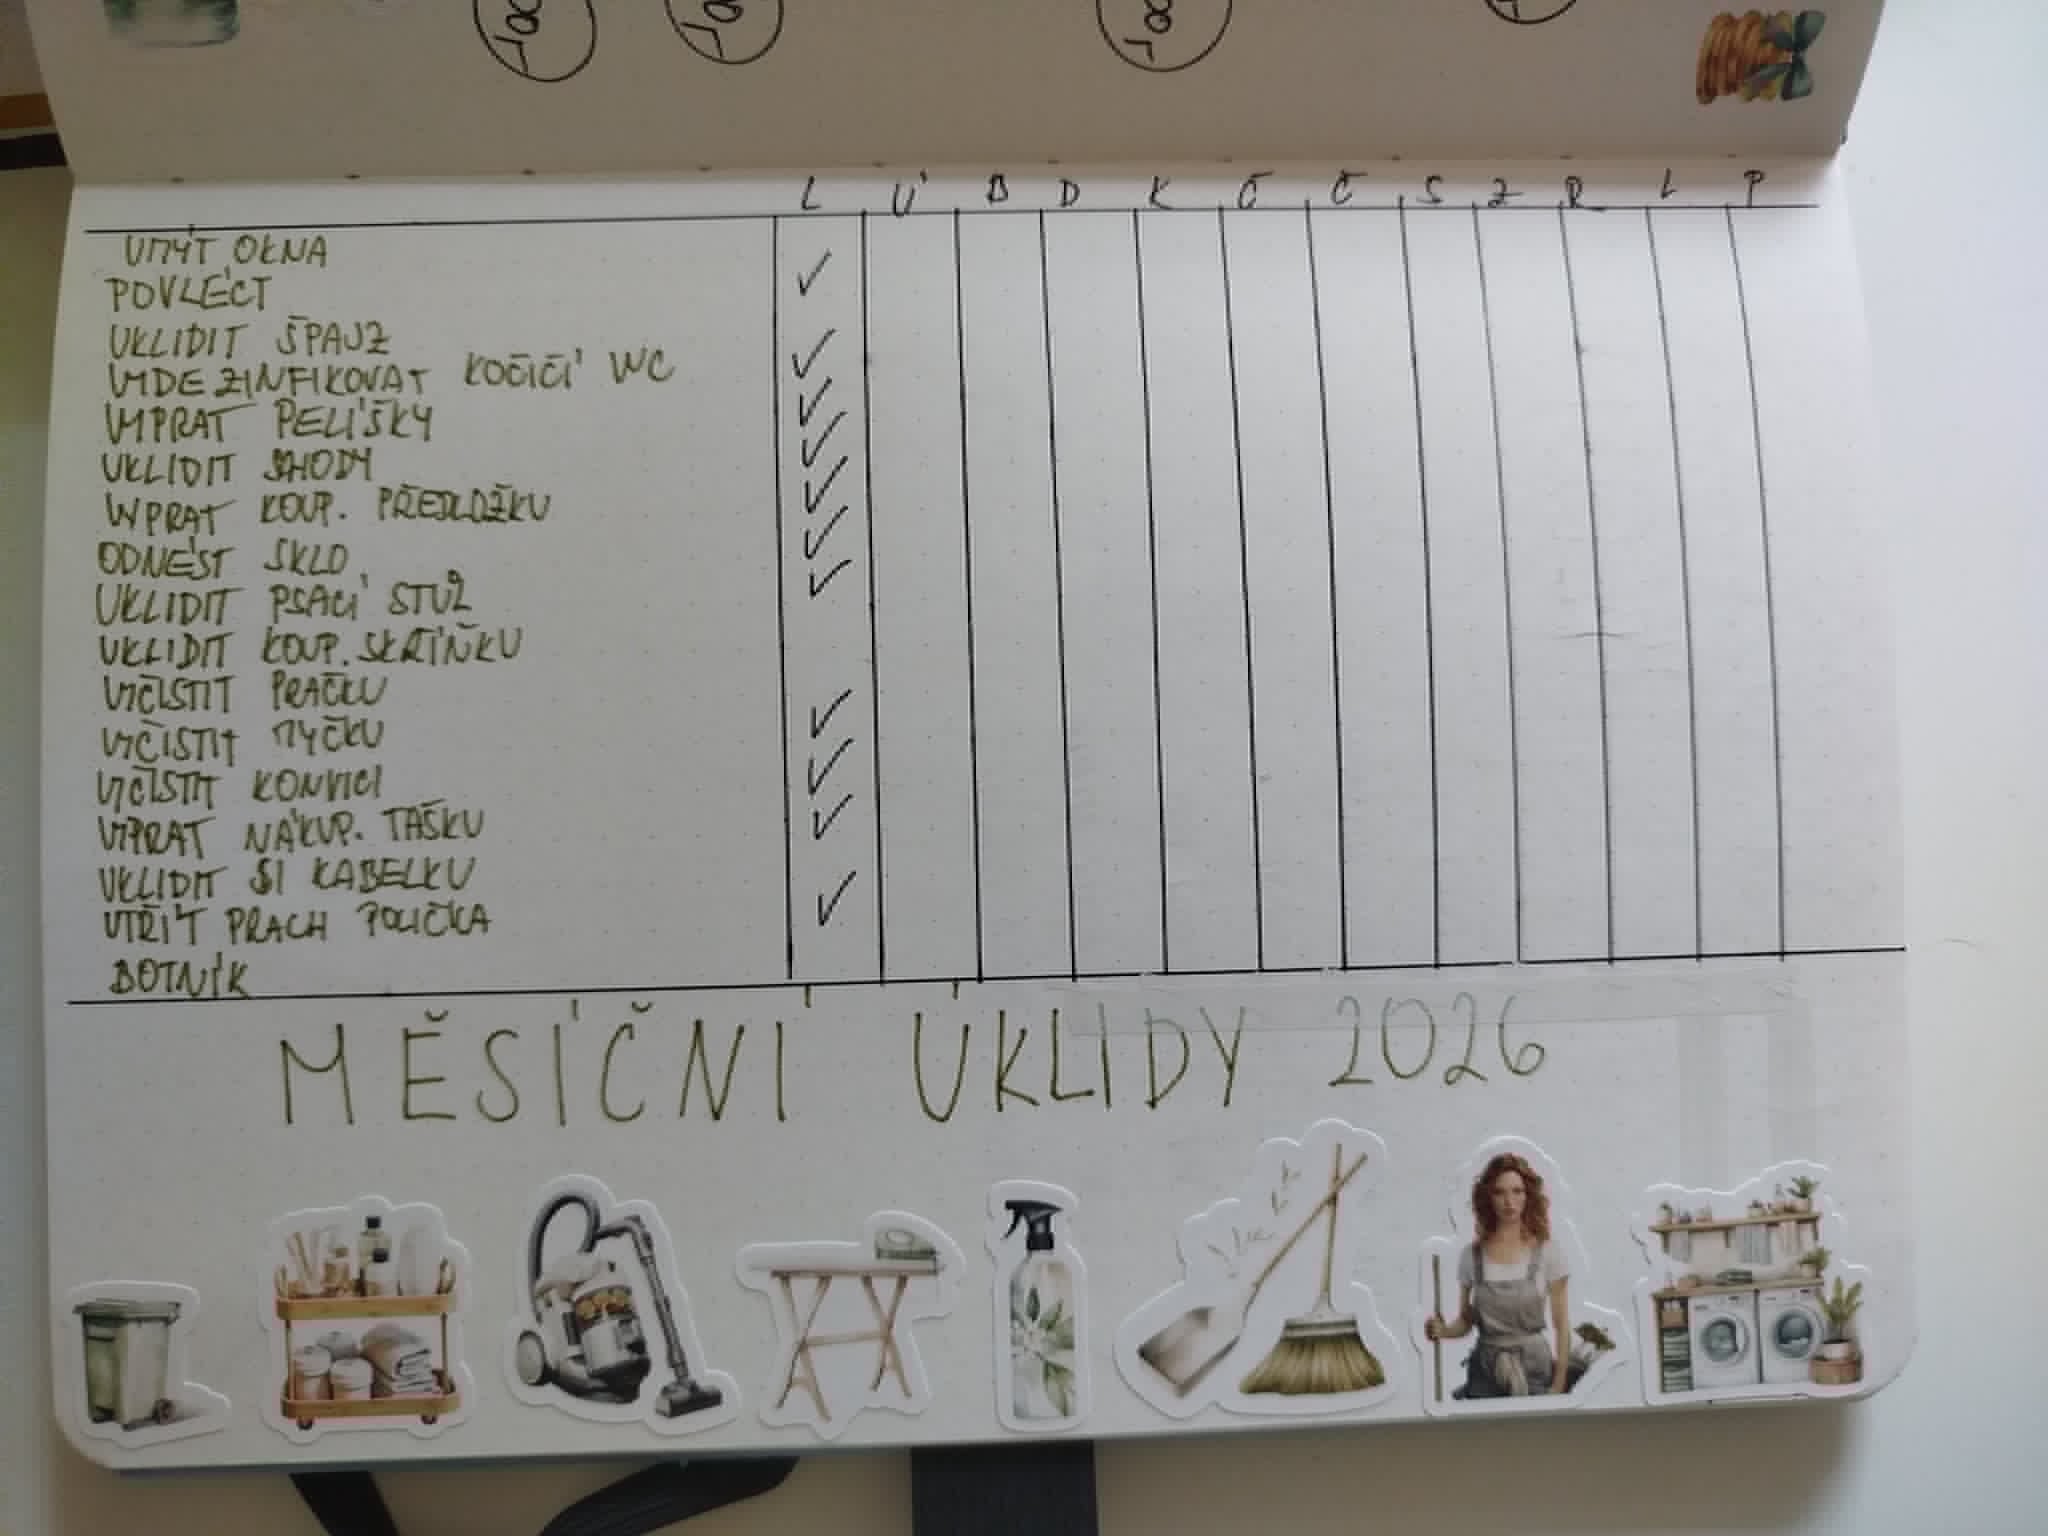 L Ú B D K Č Č S Z Ř L P
UMÝT OKNA
POVLÉCT
UKLIDIT ŠPAJZ
VYDEZINFIKOVAT KOČIČÍ WC
VYPRAT PELÍŠKY
UKLIDIT SCHODY
VYPRAT KOUP. PŘEDLOŽKU
ODNÉST SKLO
UKLIDIT PSACÍ STŮL
UKLIDIT KOUP. SKŘÍŇKU
VYČISTIT PRAČKU
VYČISTIT MYČKU
VYČISTIT KONVICI
VYPRAT NÁKUP. TAŠKU
UKLIDIT SI KABELKU
UTŘÍT PRACH POLIČKA
BOTNÍK
MĚSÍČNÍ ÚKLIDY 2026